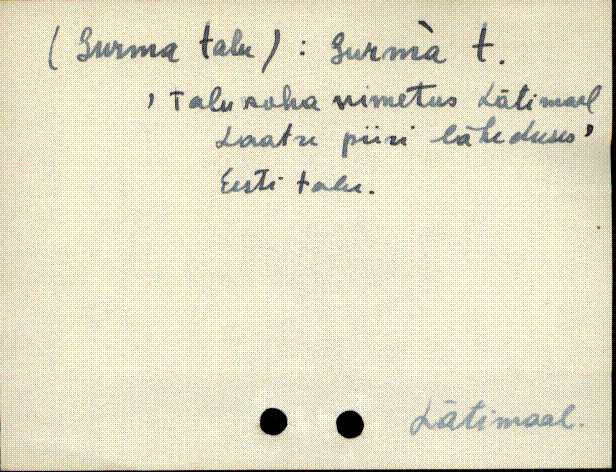 (Surma talu) : Surmà t.
, Talu koha nimetus Lätimaal
Laatre piiri läheduses ’
Eesti talu.
Lätimaal.